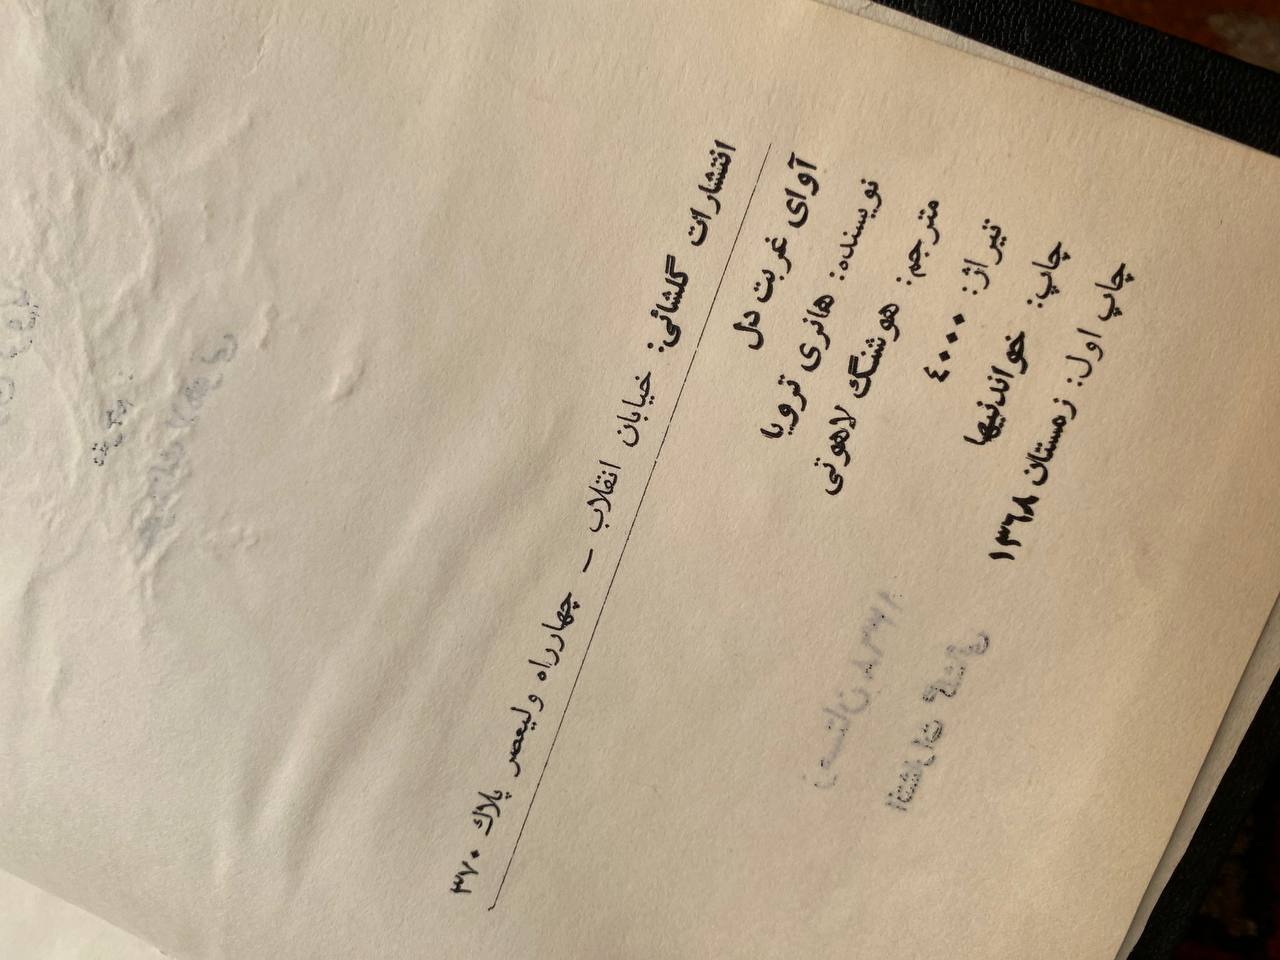 انتشارات گلشائی: خیابان انقلاب – چهارراه ولیعصر پلاك ۳۷۰
آوای غربت دل
نویسنده: هانری ترویا
مترجم: هوشنگ لاهوتی
تیراژ: ٤۰۰۰
چاپ: خواندنیها
چاپ اول: زمستان ۱۳٦۸